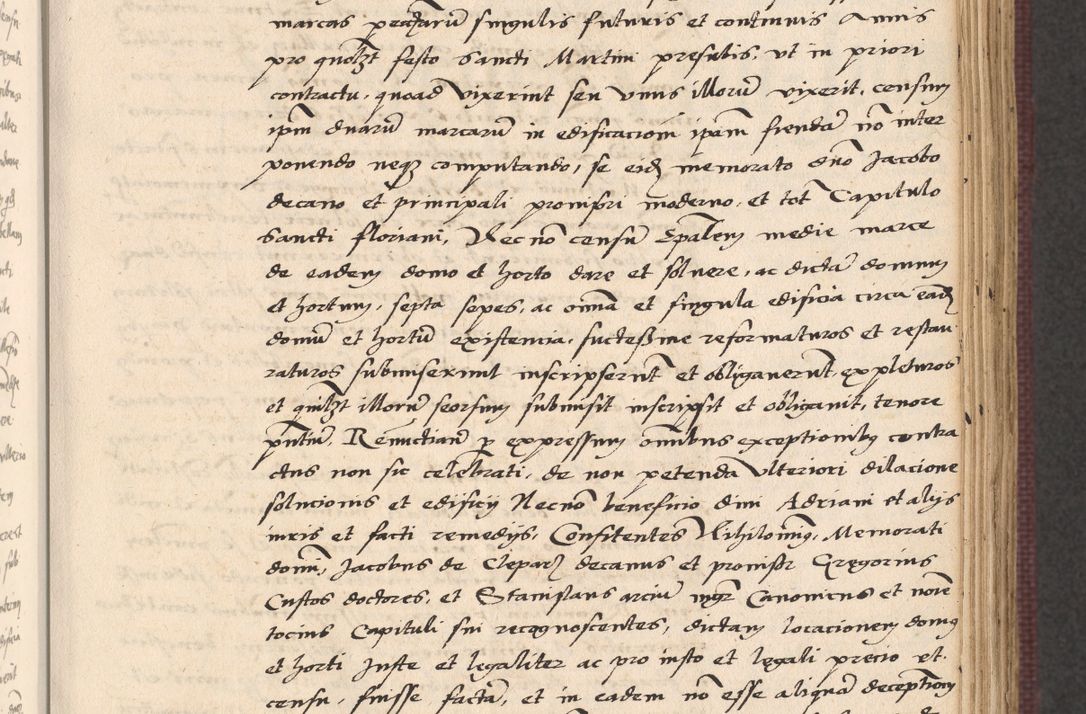 marcas pectarū singulis futuris et continuis Annis
pro quolꝫt festo Sancti Martini presulis, vt in priori
contractu, quoad vixerint seu vnus illorū vixerit, censum
ipm̄ duarū marcarū in edificacionī ipam̄ fiendā nō inter
ponendo neqꝫ computando, se eidꝫ memorato dn̄o Jacobo
decano et principali promisri moderno, et tot̄ Capitulo
Sancti floriani, Necnō censū Ep̄alem medie marce
de eadem domo et horto dare et soluere, ac dictā domum
et hortum, septa sepes, ac om̄ia et singula edificia circa eādꝫ
domū et hortū existencia, suctessiue reformaturos et restau
raturos submiserunt inscripserūt et obligauerūt, expleturos
et quilꝫt illorum seorsum submisit inscripsit et obligauit, tenore
pn̄tiū. Renūctianī p̄ expressum om̄ibus exceptionibꝫ contra
ctus non sic celebrati, de non petenda vlteriori dilacione
solucionis et edificij Necnō beneficio diui Adriani et alijs
iuris et facti remedijs, Confitentes Nihilominꝰ, Memorati
domī, Jacobus de Cleparꝫ decanus et promisr̄ Gregorius
Custos doctores, et Stanislaus arciū mgr̄ Canonicus et noīe
tocius Capituli sui recognoscentes, dictam locacionem domꝰ
et horti Juste et legaliter ac pro iusto et legali precio et
censu, fuisse factā, et in eadem nō esse aliquā deceptionem